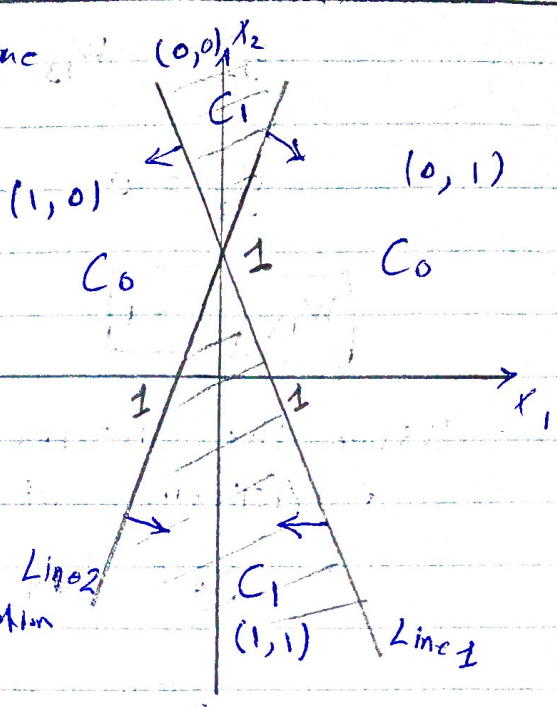 (0,0) X₂
C₁
(1,0)
(0,1)
C₀
1
C₀
1
1
X₁
Line2
C₁
(1,1)
Line1